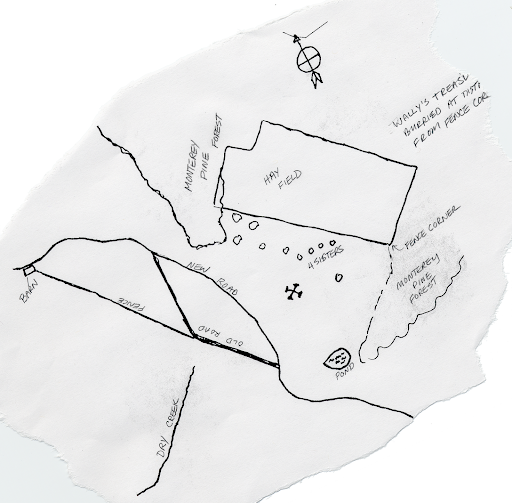 WALLY'S
BURRIED AT
FROM FENCE
MONTEREY
PINE FOREST
HAY
FIELD
FENCE CORNER
4 SISTERS
MONTEREY
PINE
FOREST
NEW ROAD
BARN
FENCE
OLD ROAD
POND
DRY CREEK